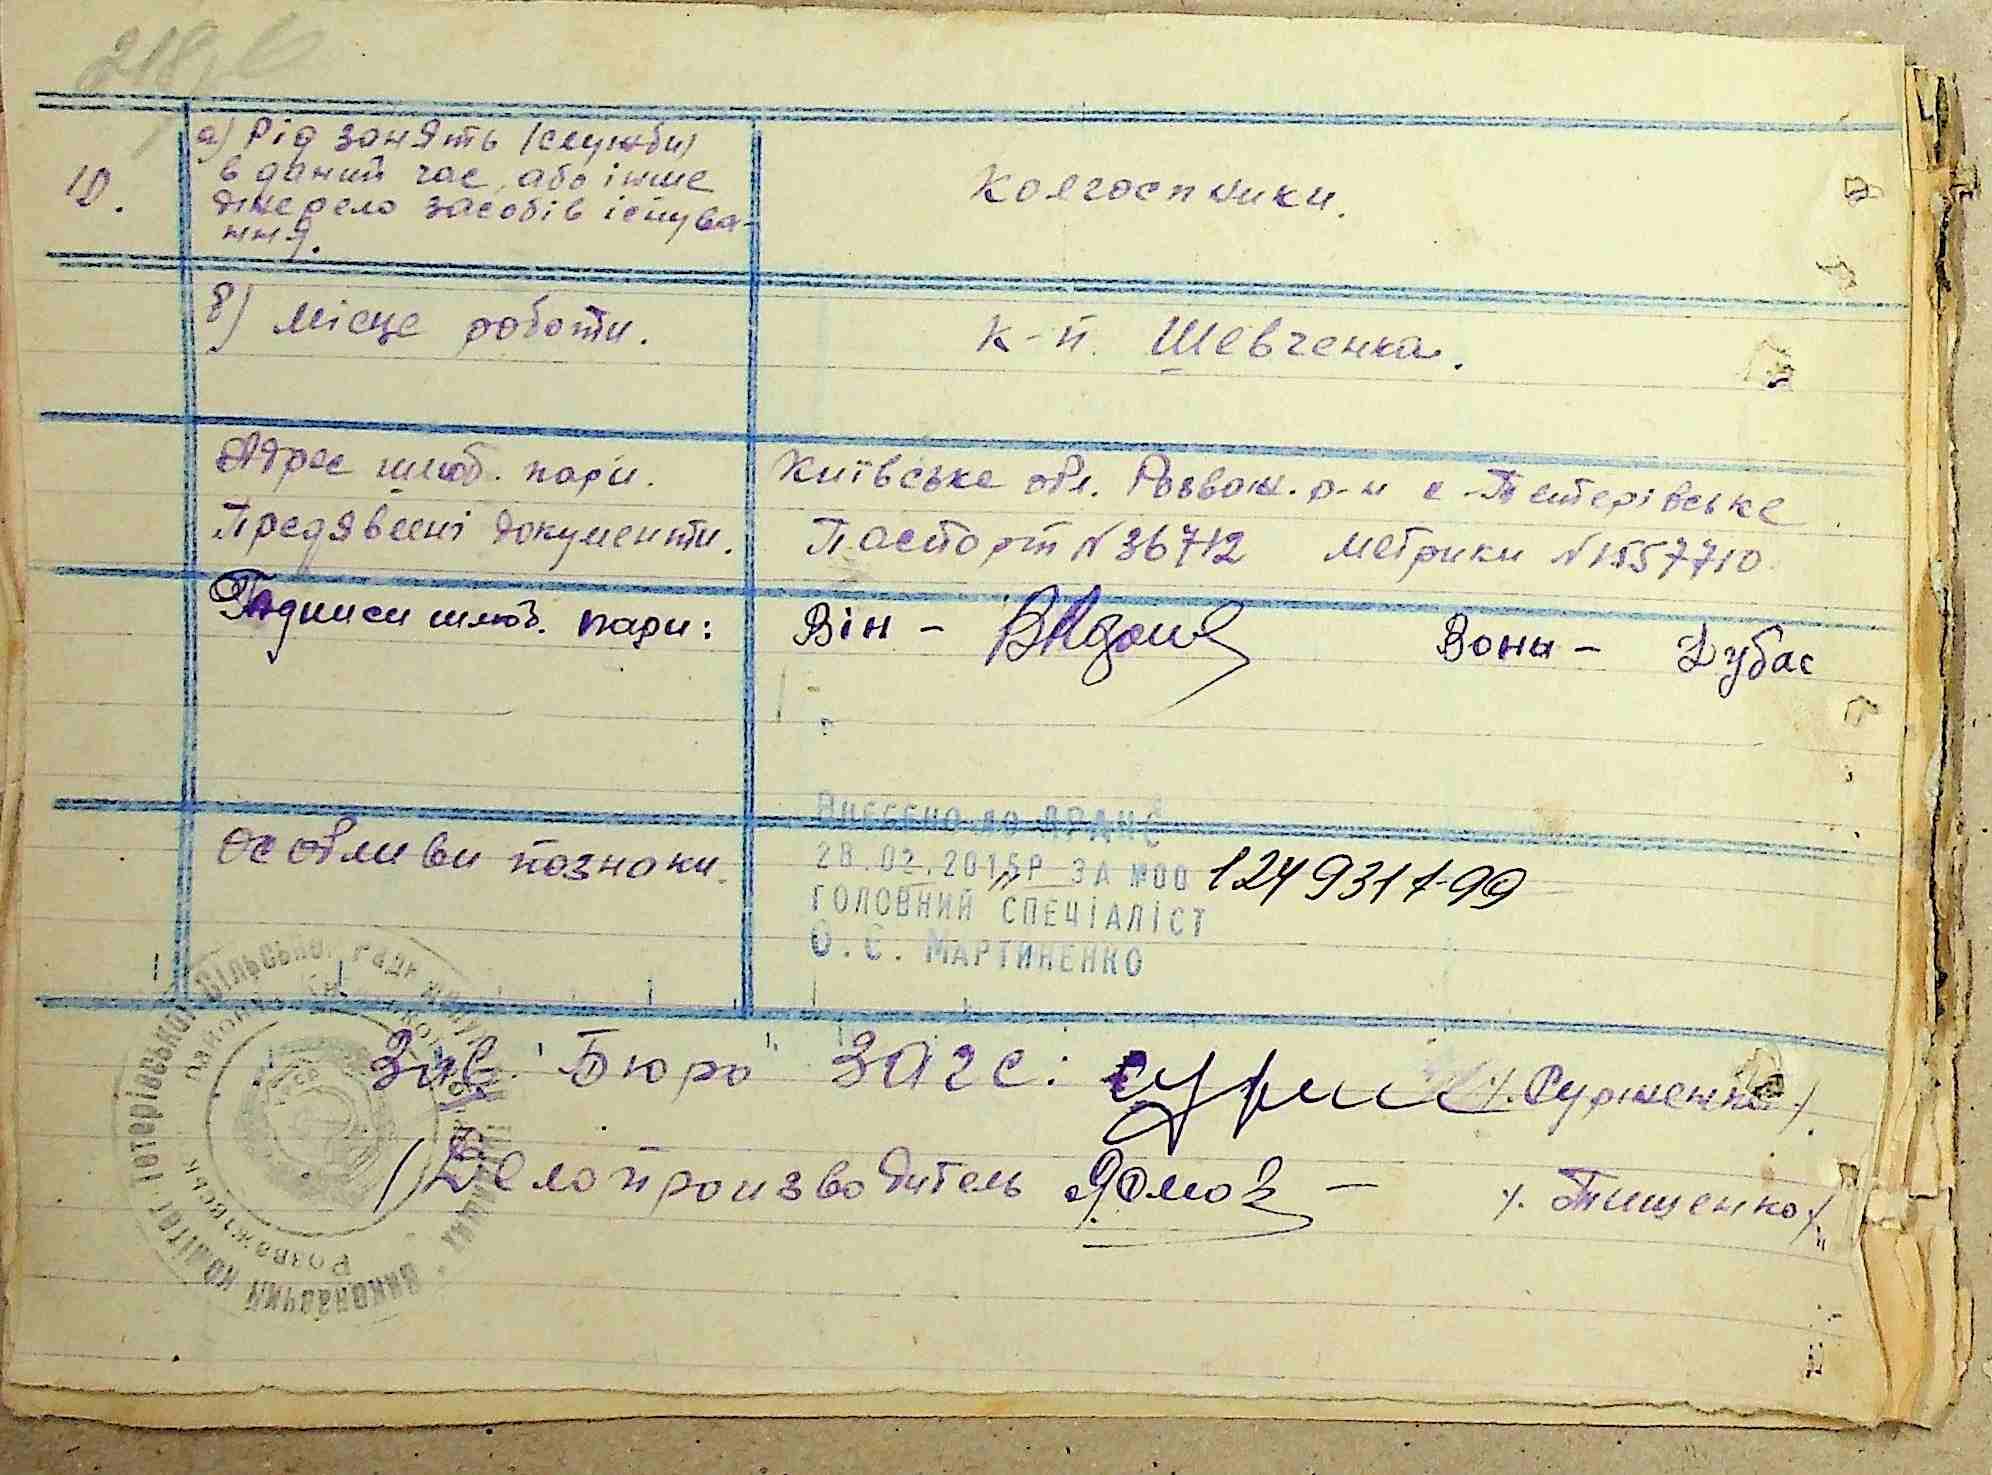 218
10.
а) Рід занять (служби)
в даний час, або інше
джерело засобів існува-
ння.
Колгоспники.
в) Місце роботи.
к-п. Шевченка.
Адрес шлюб. пари.
Київське обл. Розваж. р-н с Тетерівське
Предявлені документи.
Паспорт № 36712 метрики № 1557710.
Підписи шлюб. пари:
Він -
Вона - Дубас
Особливи познаки.
Внесено до ДРАЦС
28.02.2015р за №00 1249311-99
Головний спеціаліст
О.С. Мартиненко
Зав. Бюро ЗАГС:
Делопроизводитель
/. Тищенко /.
Виконавчий комітет Тетерівської сільської ради
Розважівськ
УРСР